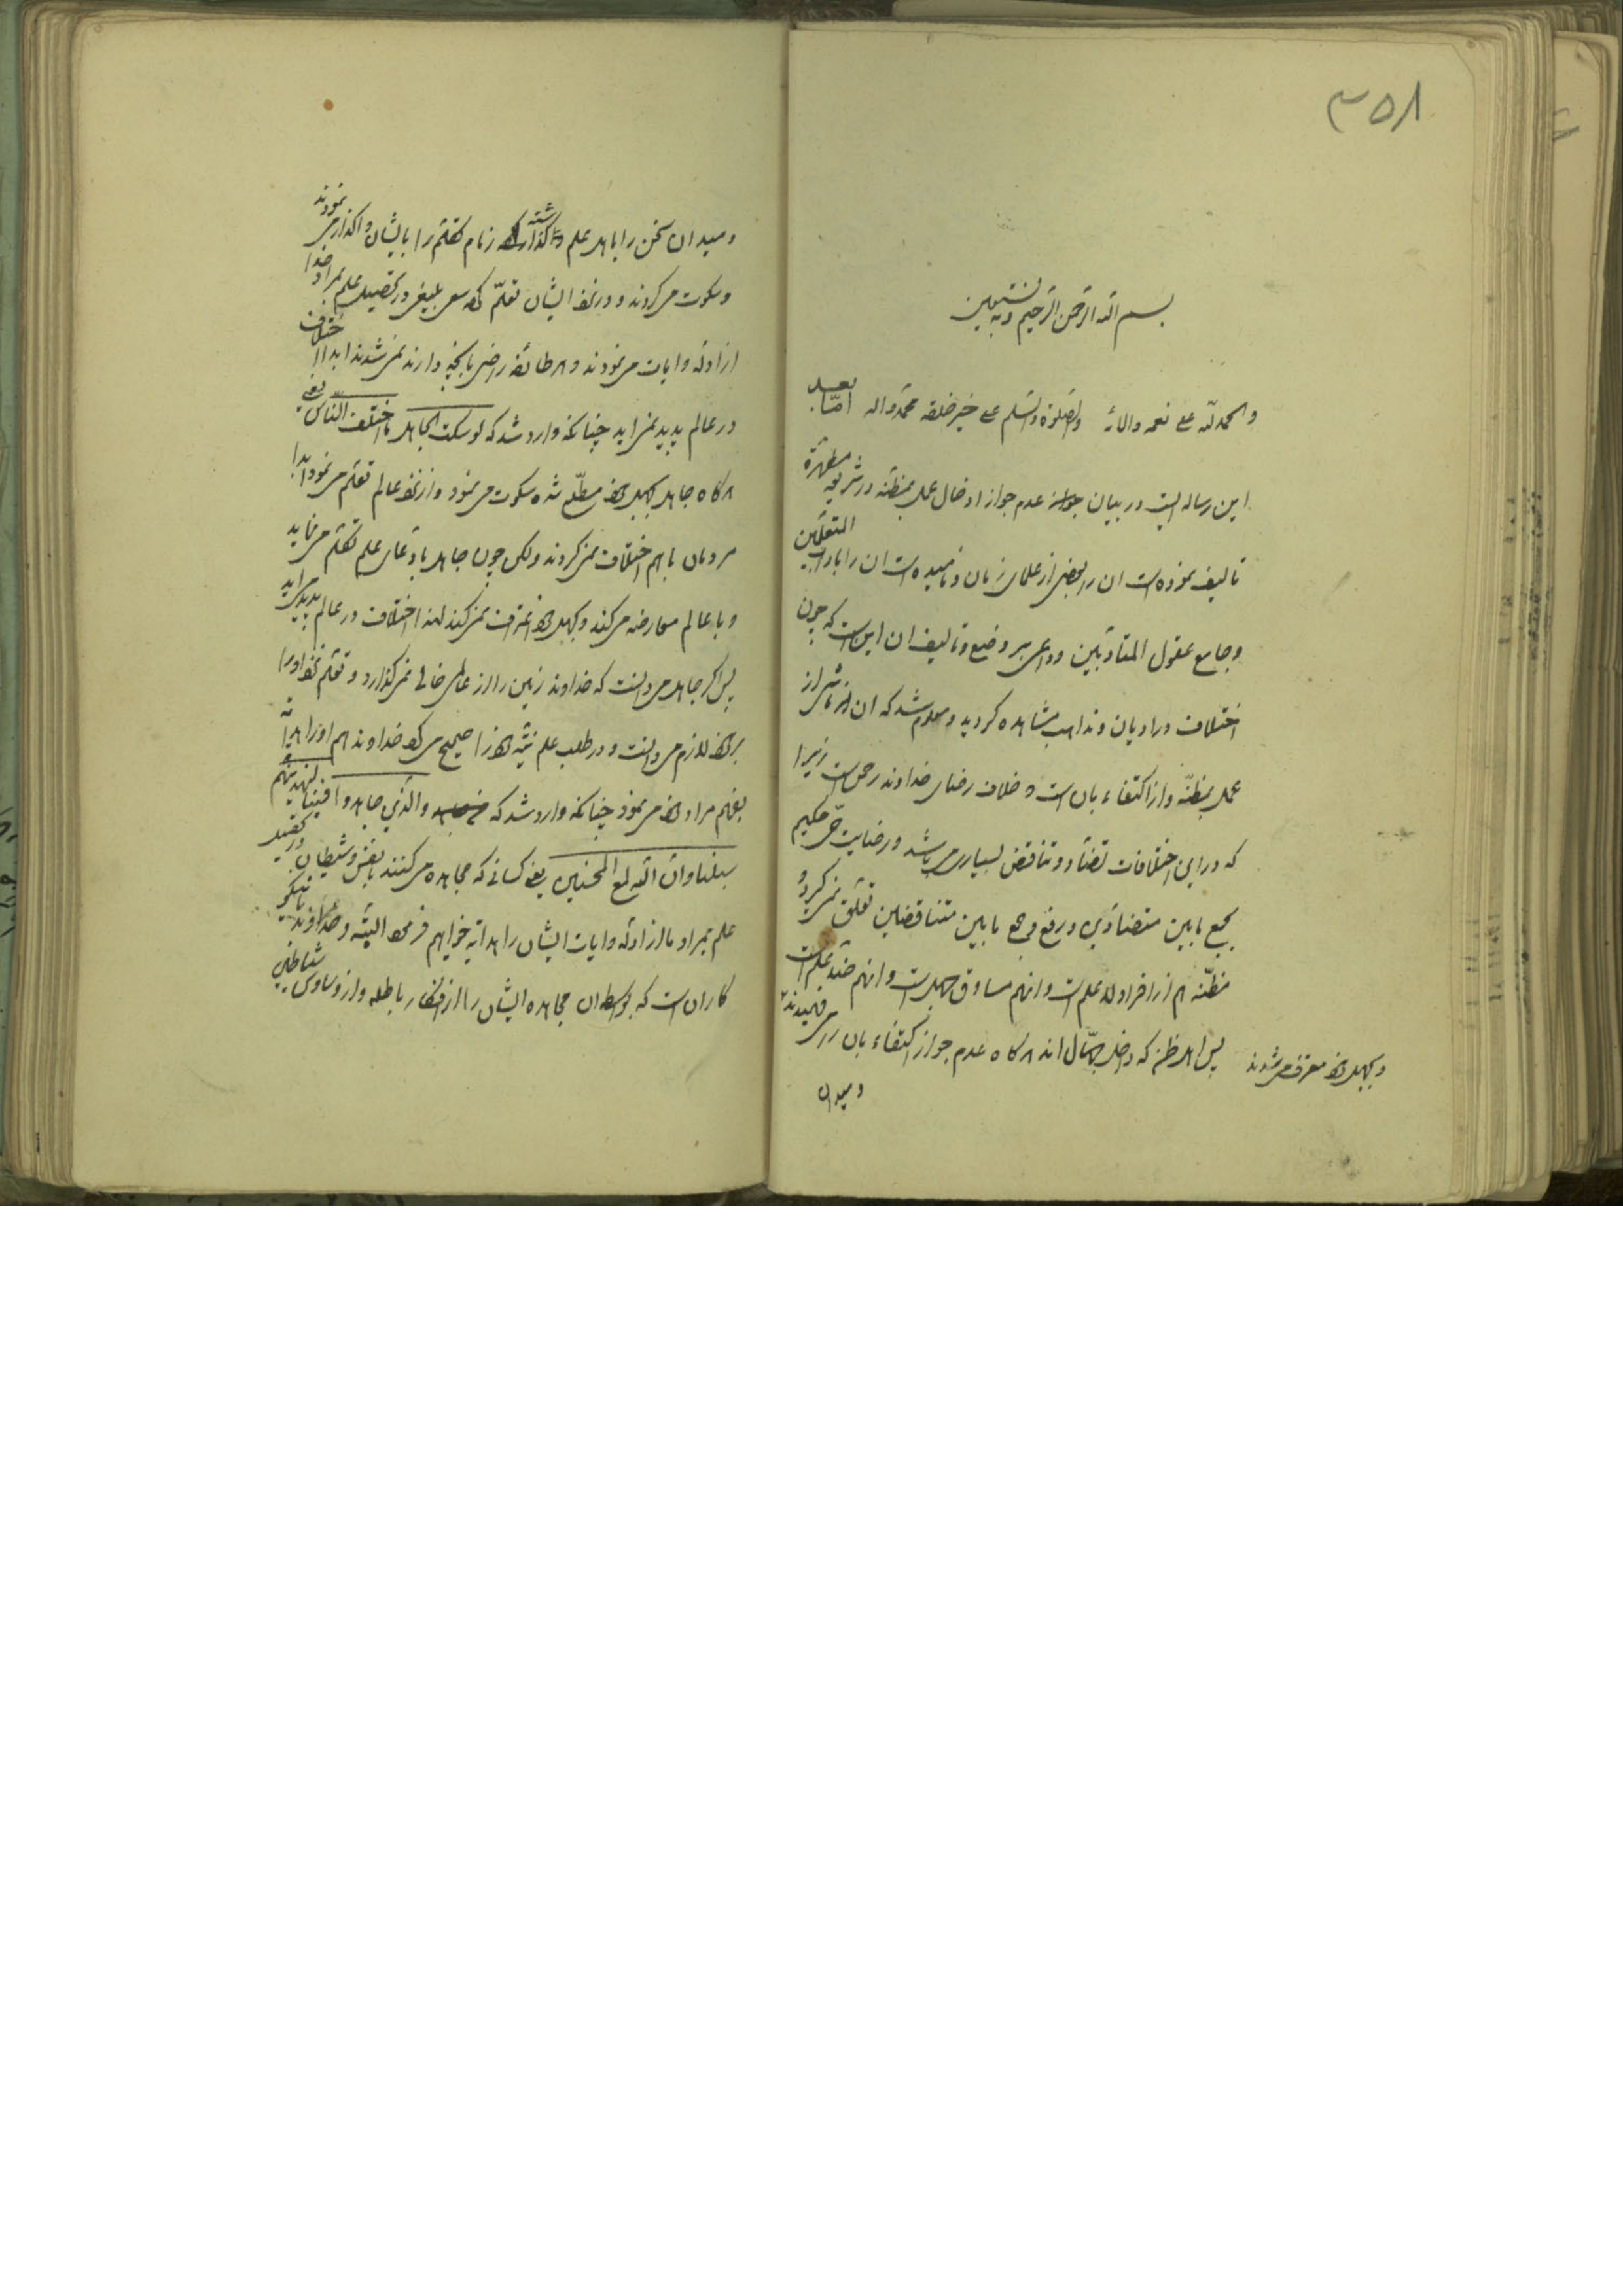 ۳۵۸
بسم الله الرحمن الرحیم وبه نستعین
والحمدلله علی نعمه والائه والصلوة والسلم علی خیر خلقه محمد واله اما بعد
این رساله ایست در بیان عدم جواز ادخال عمل بمظنه در شریعه مطهرة
تالیف نموده است ان را بعضی از علمای زمان و نامیده است ان را باداب المتعلمین
وجامع عقول المتادبین و داعی بر وضع و تالیف ان این است که چون
اختلاف در ادیان و مذاهب مشاهده کردید و معلوم شد که ان ناشی از
عمل بمظنه و از اکتفاء بان است و خلاف رضای خداوند رحمن است زیرا
که در این اختلافات تضاد و تناقض بسیار می باشد و رضایت حق حکیم
بجمع مابین متضادین و رفع و جمع مابین متناقضین تعلق نمی کیرد و
مظنه هم از افراد لا علم است و انهم مساوق جهل است و انهم ضد علم است
پس اهل ظن که داخل جهال اند هرکاه عدم جواز اکتفاء بان را می فهمیدند
و بجهل خود معترف می شدند
ومیدان
ومیدان سخن را باهل علم واکذاشته زمام تکلم را بایشان واکذار می نمودند
وسکوت می کردند و در نزد ایشان تعلم کرده سعی بلیغ در تحصیل علم بمراد خدا
از ادله و ایات می نمودند و هر طائفه راضی بانچه دارند نمی شدند ابدا اختلاف
در عالم پدید نمی اید چنانکه وارد شد که لو سکت الجاهل ما اختلف الناس یعنی
هرکاه جاهل بجهل خود مطلع شده سکوت می نمود و از نزد عالم تعلم می نمود ابدا
مردمان با هم اختلاف نمی کردند ولکن چون جاهل بادعای علم تکلم می نماید
و با عالم معارضه می کند و بجهل خود اعتراف نمی کند لهذا اختلاف در عالم پدید می اید
پس اکر جاهل می دانست که خداوند زمین را از عالمی خالی نمی کذارد و تعلم نزد او را
بر خود لازم می دانست و در طلب علم نیته خود را صحیح می کرد خداوند هم او را هدایة
بفهم مراد خود می نمود چنانکه وارد شد که والذین جاهدوا فینا لنهدینهم
سبلنا وان الله لمع المحسنین یعنی کسانی که مجاهده می کنند با نفس و شیطان در تحصیل
علم بمراد ما از ادله و ایات ایشان را هدایة خواهیم فرمود البته و خداوند با نیکو
کاران است که بواسطه ان مجاهده ایشان را از افکار باطله و از وساوس شیاطین